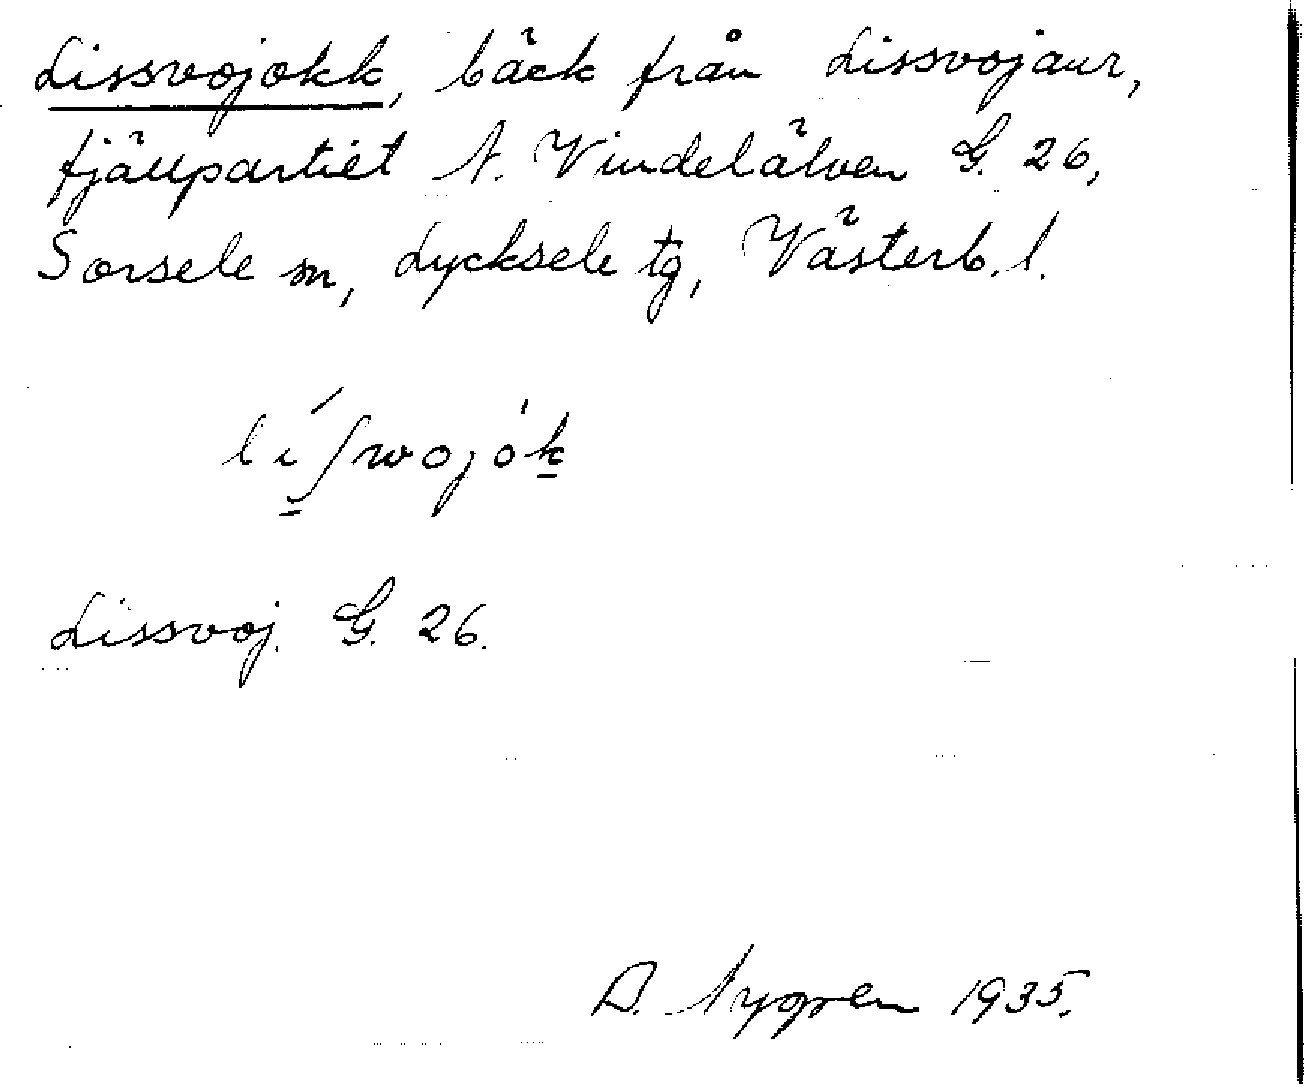 Lissvojokk, bäck från Lissvojaur,
fjällpartiet N. Vindelälven G. 26,
Sorsele sn, Lycksele tg, Västerb. l.
líʃwojók̲
Lissvoj. G. 26.
D. Nygren 1935.